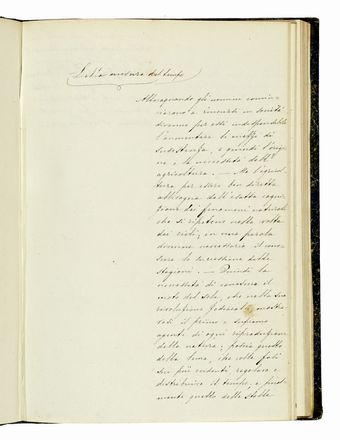 Della misura del tempo
Allorquando gli uomini comin-
ciarono a riunirsi in società
divenne per essi indispensabile
l'aumentare i mezzi di
sussistenza, e quindi l'origi-
ne e la necessità dell'
agricoltura. — Ma l'agricol-
tura per essere ben diretta
abbisogna dell'esatta cogni-
zione dei fenomeni naturali
che si ripetono nella volta
dei cieli; in una parola
divenne necessario il cono-
scere la successione delle
stagioni. — Quindi la
necessità di misurare il
moto del Sole, che nella sua
rivoluzione
il primo e supremo
agente di ogni riproduzione
della natura; poscia quello
della luna, che colle fasi
sue più evidenti regolava e
distribuiva il tempo, e final-
mente quello delle stelle